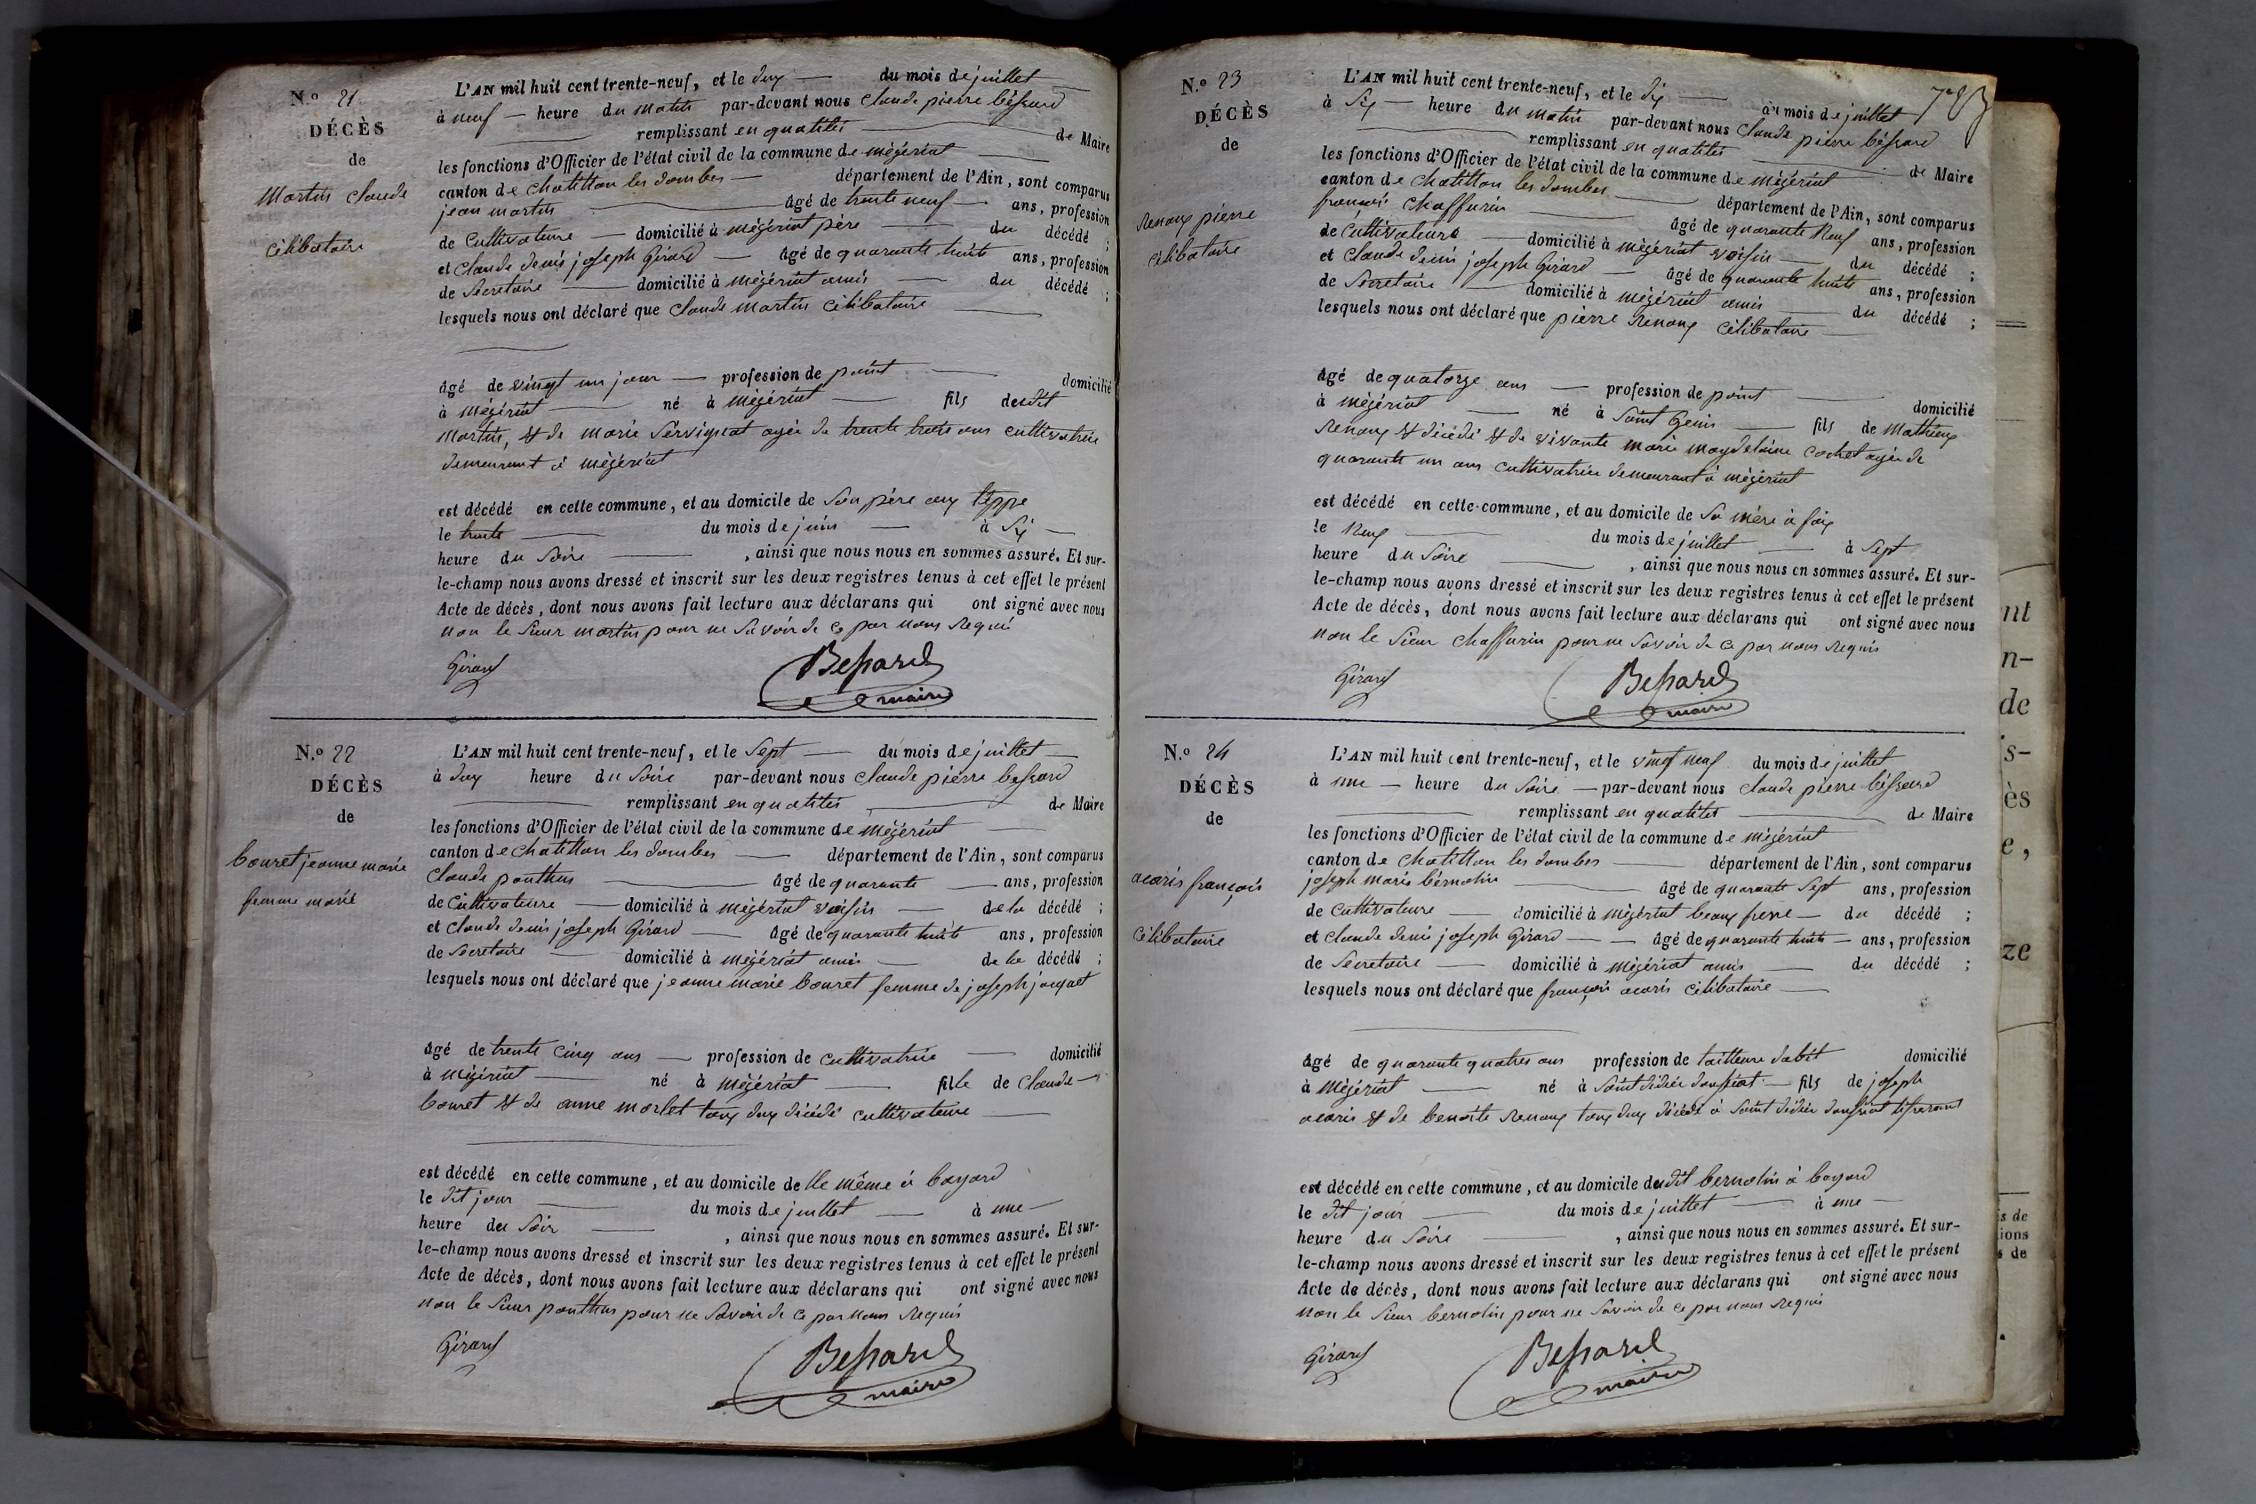 N.o 21
DÉCÈS
de
Martin Claude
célibataire
L'AN mil huit cent trente-neuf, et le dux du mois de juillet
à neuf heure du matin par-devant nous claude pierre béssard
remplissant en qualités de Maire
les fonctions d'Officier de l'état civil de la commune de mégériat
canton de chatillon les dombes département de l'Ain, sont comparus
jean martin âgé de trente neuf ans, profession
de Cultivateure domicilié à mégériat père du décédé ;
et Claude denis joseph Girard âgé de quarante huit ans, profession
de Secretaire domicilié à mégériat amis du décédé ;
lesquels nous ont déclaré que Claude martin Célibataire
âgé de vingt un jour profession de point domicilié
à mégériat né à mégériat fils dudit
martin, & de marie Servignat agée de trente trois ans cultivatrice
demeurant à mégériat
est décédé en cette commune, et au domicile de Son père aux teppe
le trente du mois de juin à Six
heure du Soire , ainsi que nous nous en sommes assuré. Et sur-
le-champ nous avons dressé et inscrit sur les deux registres tenus à cet effet le présent
Acte de décès, dont nous avons fait lecture aux déclarans qui ont signé avec nous
non le Sieur martin pour ne Savoir de ce par nous requis
Girard Bessard
maire
N.o 22
DÉCÈS
de
bouret jeanne marie
femme marié
L'AN mil huit cent trente-neuf, et le Sept du mois de juillet
à dux heure du Soire par-devant nous claude pierre bessard
remplissant en qualités de Maire
les fonctions d'Officier de l'état civil de la commune de mégériat
canton de chatillon les dombes département de l'Ain, sont comparus
Claude ponthus âgé de quarante ans, profession
de Cultivateure domicilié à mégériat voisin de la décédé ;
et Claude denis joseph Girard âgé de quarante huit ans, profession
de Secretaire domicilié à mégériat amis de la décédé ;
lesquels nous ont déclaré que jeanne marie bouret femme de joseph
âgé de trente cinq ans profession de cultivatrice domicilié
à mégériat né à mégériat fille de Claude
bouret & de anne morlet toux dux décédé cultivateure
est décédé en cette commune, et au domicile de lle même à bayard
le dit jour du mois de juillet à une
heure du Soir , ainsi que nous nous en sommes assuré. Et sur-
le-champ nous avons dressé et inscrit sur les deux registres tenus à cet effet le présent
Acte de décès, dont nous avons fait lecture aux déclarans qui ont signé avec nous
non le Sieur ponthus pour ne Savoir de ce par nous requis
Girard Bessard
maire
N.o 23
DÉCÈS
de
renoux pierre
célibataire
L'AN mil huit cent trente-neuf, et le dix du mois de juillet
à Six heure du matin par-devant nous Claude pierre béssard
remplissant en qualités de Maire
les fonctions d'Officier de l'état civil de la commune de mégériat
canton de Chatillon les dombes département de l'Ain, sont comparus
françois Chaffurin âgé de quarante Neuf ans, profession
de Cultivateure domicilié à mégériat voisin du décédé ;
et Claude denis joseph Girard âgé de quarante huit ans, profession
de Secretaire domicilié à mégériat amis du décédé ;
lesquels nous ont déclaré que pierre renoux Célibataire
âgé de quatorze ans profession de point domicilié
à mégériat né à Saint Genis fils de Mathieux
renoux & décédé & de vivante marie magdelaine cochet agée de
quarante un ans cultivatrice demeurant à mégériat
est décédé en cette commune, et au domicile de Sa mère à
le Neuf du mois de juillet à Sept
heure du Soire , ainsi que nous nous en sommes assuré. Et sur-
le-champ nous avons dressé et inscrit sur les deux registres tenus à cet effet le présent
Acte de décès, dont nous avons fait lecture aux déclarans qui ont signé avec nous
non le Sieur Chaffurin pour ne Savoir de ce par nous requis
Girard Bessard
maire
N.o 24
DÉCÈS
de
acaris françois
Célibataire
L'AN mil huit cent trente-neuf, et le vingt neuf du mois de juillet
à une heure du Soire par-devant nous Claude pierre béssard
remplissant en qualités de Maire
les fonctions d'Officier de l'état civil de la commune de mégériat
canton de chatillon les dombes département de l'Ain, sont comparus
joseph marie bérnolin âgé de quarante Sept ans, profession
de Cultivateure domicilié à mégériat beaux frere du décédé ;
et Claude denis joseph Girard âgé de quarante huit ans, profession
de Secretaire domicilié à mégériat amis du décédé ;
lesquels nous ont déclaré que françois acaris célibataire
âgé de quarante quatres ans profession de tailleure dabit domicilié
à Mégériat né à Saint didier daussiat fils de joseph
acaris & de benoite renoux toux dux décédé à Saint didier daussiat tisserant
est décédé en cette commune, et au domicile dudit bernolin à bayard
le dit jour du mois de juillet à une
heure du Soire , ainsi que nous nous en sommes assuré. Et sur-
le-champ nous avons dressé et inscrit sur les deux registres tenus à cet effet le présent
Acte de décès, dont nous avons fait lecture aux déclarans qui ont signé avec nous
non le Sieur bernolin pour ne Savoir de ce par nous requis
Girard Bessard
maire
nt
n-
de
is-
ès
e,
ze
is de
ions
s de